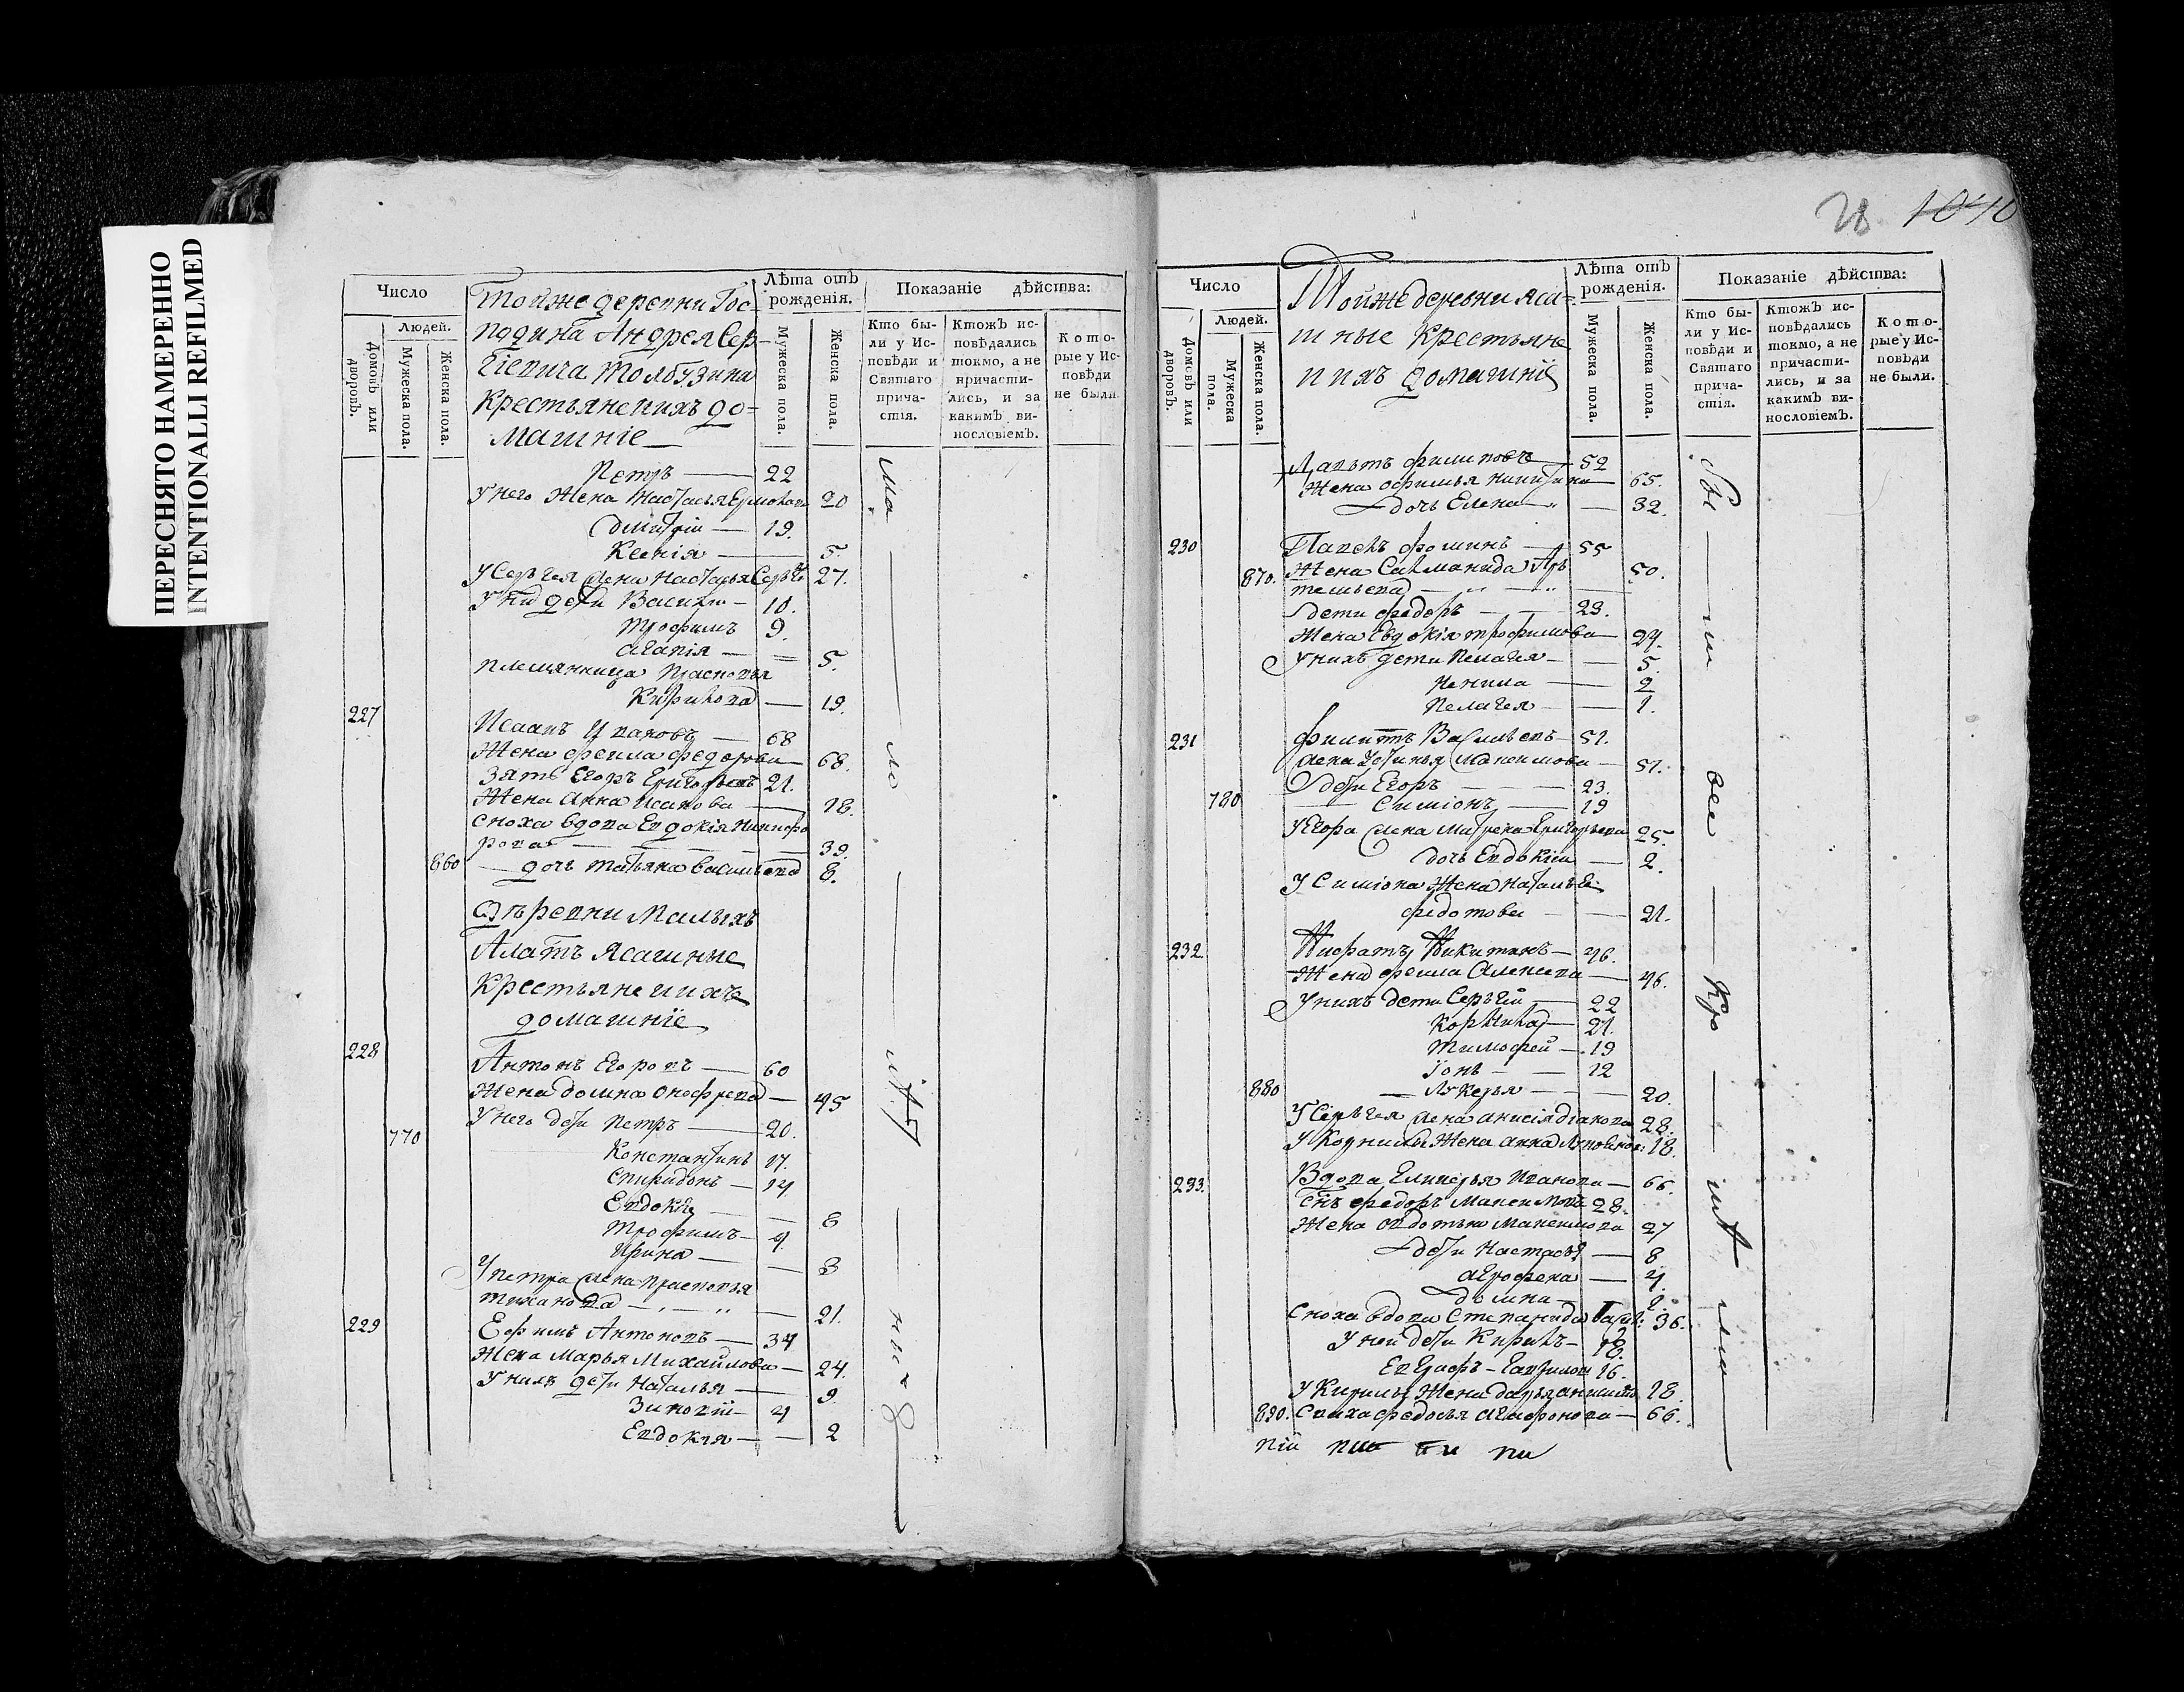 ПЕРЕСНЯТО НАМЕРЕННО
INTENTIONALLI REFILMED
Число
Людей.
Домовъ или дворовъ.
Мужеска пола.
Женска пола.
Тойже деревни Гос-
подина Андрея Сер-
гіевича Толбузина
крестьяне ихъ до=
машніе
Лѣта отъ рожденія.
Мужеска пола.
Женска пола.
Показаніе дѣйства:
Кто бы-
ли у Ис-
повѣди и
Святаго
прича-
стія.
Ктожъ ис-
повѣдались
токмо, а не
причасти-
лись, и за
какимъ ви-
нословіемъ.
Кото-
рые у Ис-
повѣди
не были.
Петръ — 22
У него жена Настасья 20
Дмитрій — 19.
Ксенія — 5.
У Сергея жена Настасья 27.
дети Василий — 10.
Трофимъ 9.
Агапія — 5.
племянница Прасковья
— 19.
227
Исаакъ — 68
Жена Фекла Федорова — 68.
Зять Егоръ Григорьевъ 21.
Жена Анна Исакова — 18.
Сноха вдова Евдокія Никифо
рова — 39.
860 — дочь Татьяна Васильева 8.
Деревни Малыхъ
Алатъ Ясашные
крестьяне и ихъ
домашніе
228
Антонъ Егоровъ — 60
Жена Домна — 45
770 У него дети Петръ — 20.
Константинъ 17.
Спиридонъ — 14
Евдокія — 8
Трофимъ — 4
Ирина — 3
У Петра жена Прасковья
— 21.
229
Ефимъ Антоновъ — 34
Жена Марья Михайлова — 24.
У нихъ дети Наталья — 9
Зиновій — 4
Евдокия — 2
28 1040
Число
Людей.
Домовъ или дворовъ.
Мужеска пола.
Женска пола.
Тойже деревни яса=
шные крестьяне
и ихъ домашніе
Лѣта отъ рожденія.
Мужеска пола.
Женска пола.
Показаніе дѣйства:
Кто бы-
ли у Ис-
повѣди и
Святаго
прича-
стія.
Ктожъ ис-
повѣдались
токмо, а не
причасти-
лись, и за
какимъ ви-
нословіемъ.
Кото-
рые у Ис-
повѣди
не были.
Филиповъ — 52
Жена Офимья Никитина — 65.
дочь Елена — 32.
230
Павелъ Фоминъ — 55
870. Жена 50.
дети Федоръ — 23.
Жена Евдокія Трофимова — 24.
У нихъ дети Пелагея — 5
Ненила — 2
Пелагея — 1.
231
Филиппъ Васильевъ — 51.
жена Устинья Максимова — 51.
дети Егоръ — 23.
780 Симіонъ — 19
У Егора жена Матрена Григорьева 25.
дочь Евдокия — 2.
У Симіона жена Наталья
Федотова — 21.
232
Никитинъ — 46.
Жена Фекла Алексева — 46.
У нихъ дети Сергѣй — 22
Корнила — 21.
Тимофей — 19
Іонъ — 12
880 — Лукерья — 20.
У Сергея жена Анисія 28.
У Корнилы жена Анна 18.
233.
Вдова Гликерья Иванова — 66.
Сынъ Федоръ Максимовъ 28.
Жена Овдотья Максимова 27
дети Настасья — 8
Агрофена — 4.
Домна — 2.
Сноха вдова Степанида 36.
У ней дети Кирилъ — 18.
Евграфъ — 16.
У Кирилы жена Дарья 18.
890. Федосья Агафонова — 66.